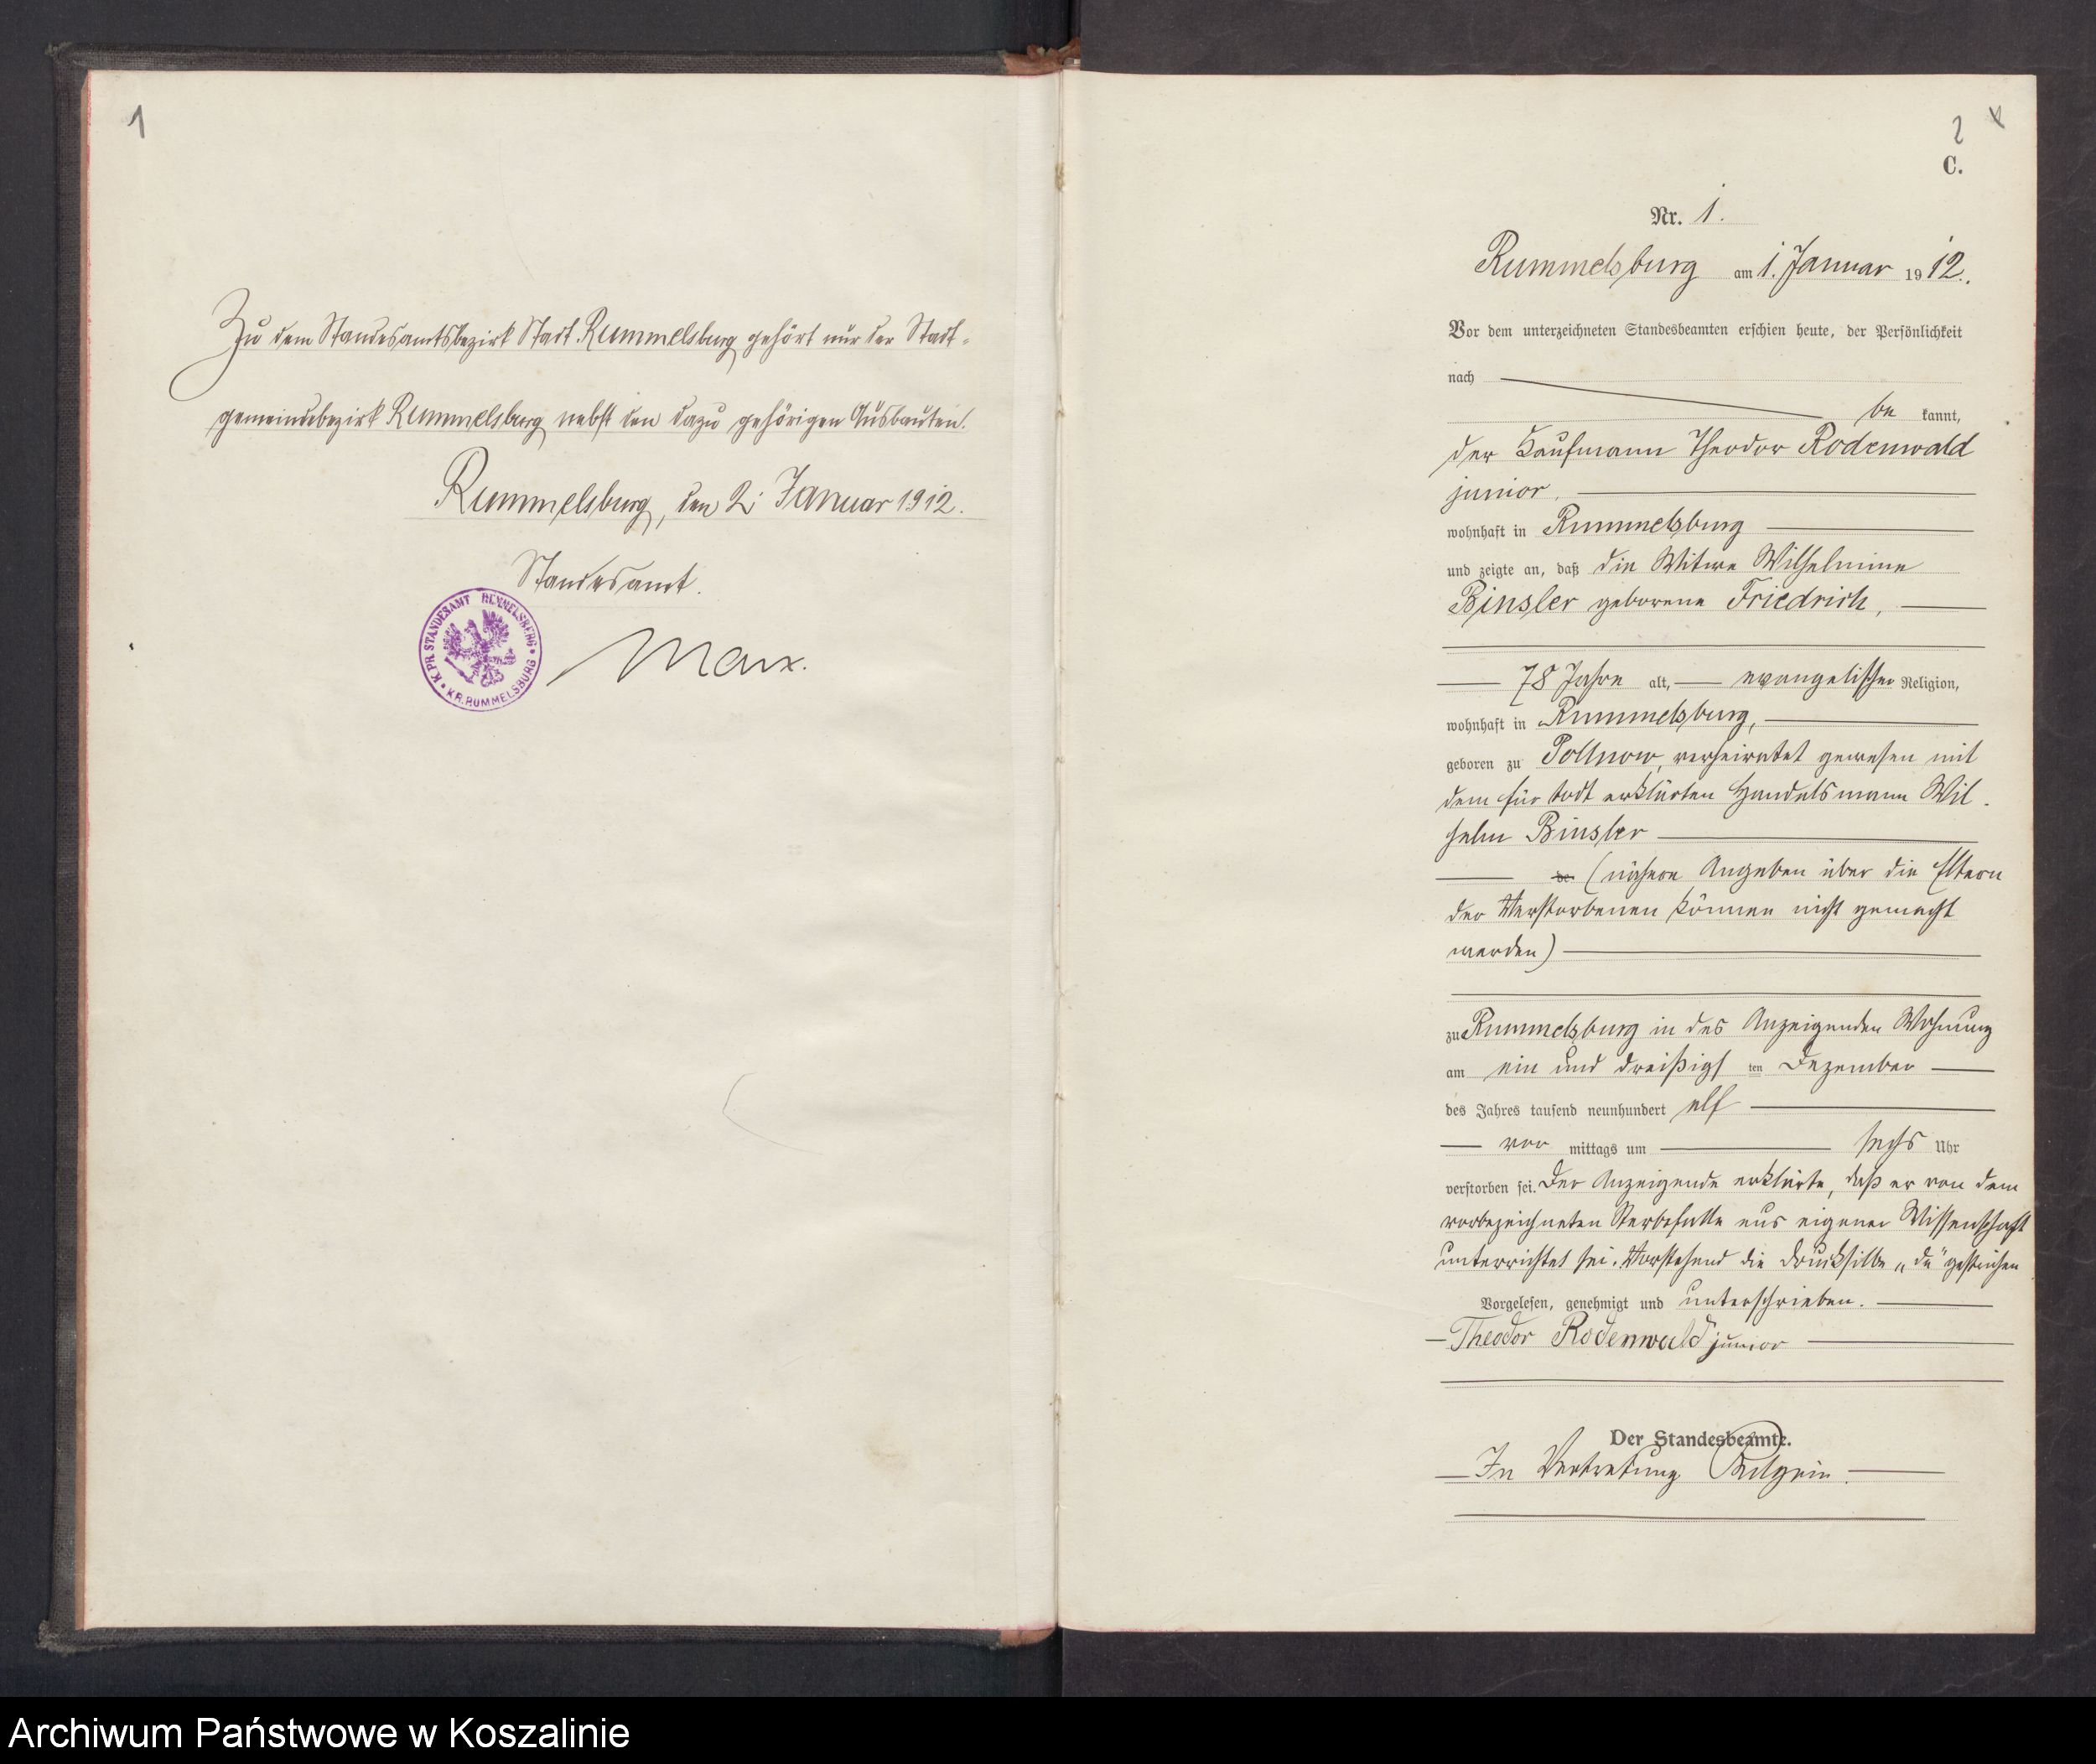 1
Zu dem Standesamtsbezirk Stadt Rummelsburg gehört nur der Stadt-
gemeindebezirk Rummelsburg nebst den dazu gehörigen Ausbauten.
Rummelsburg, den 2. Januar 1912.
Standesamt.
K. PR. STANDESAMT RUMMELSBURG
KR. RUMMELSBURG
Marx.
2
C.
Nr. 1.
Rummelsburg am 1. Januar 1912.
Vor dem unterzeichneten Standesbeamten erschien heute, der Persönlichkeit
nach
be kannt,
der Kaufmann Theodor Rodenwald
junior.
wohnhaft in Rummelsburg
und zeigte an, daß die Witwe Wilhelmine
Binsler geborene Friedrich,
78 Jahre alt, evangelischer Religion,
wohnhaft in Rummelsburg,
geboren zu Pollnow, verheiratet gewesen mit
dem für todt erklärten Handelsmann Wil-
helm Binsler
(nähere Angaben über die Eltern
der Verstorbenen können nicht gemacht
werden)
zu Rummelsburg in des Anzeigenden Wohnung
am ein und dreißigst ten Dezember
des Jahres tausend neunhundert elf
vor mittags um sechs Uhr
verstorben sei. Der Anzeigende erklärte, daß er von dem
vorbezeichneten Sterbefalle aus eigener Wissenschaft
unterrichtet sei. Vorstehend die Drucksilbe „de" gestrichen
Vorgelesen, genehmigt und unterschrieben.
Theodor Rodenwald junior
Der Standesbeamte.
In Vertretung
Archiwum Państwowe w Koszalinie